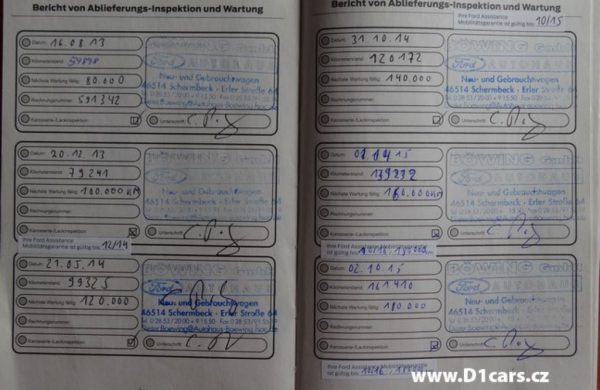 Bericht von Ablieferungs-Inspektion und Wartung
Datum: 16.08.13
Kilometerstand:
Nächste Wartung fällig: 80.000
Rechnungsnummer: 591342
Karosserie-/Lackinspektion
Unterschrift:
BÖWING GmbH
Ford AUTOHAUS
Neu- und Gebrauchtwagen
46514 Schermbeck - Erler Straße 64
Datum: 20.12.13
Kilometerstand: 79241
Nächste Wartung fällig: 100.000 KM
Rechnungsnummer:
Karosserie-/Lackinspektion
Unterschrift:
Neu- und Gebrauchtwagen
46514 Schermbeck - Erler Straße 64
Ihre Ford Assistance
Mobilitätsgarantie ist gültig bis: 12/14
Datum: 21.05.14
Kilometerstand: 99325
Nächste Wartung fällig: 120.000
Rechnungsnummer:
Karosserie-/Lackinspektion
Unterschrift:
BÖWING GmbH
Ford AUTOHAUS
Neu- und Gebrauchtwagen
46514 Schermbeck - Erler Straße 64
Bericht von Ablieferungs-Inspektion und Wartung
Ihre Ford Assistance
Mobilitätsgarantie ist gültig bis: 10/15
Datum: 31.10.14
Kilometerstand: 120172
Nächste Wartung fällig: 140.000
Rechnungsnummer:
Karosserie-/Lackinspektion
Unterschrift:
BÖWING GmbH
Ford AUTOHAUS
Neu- und Gebrauchtwagen
46514 Schermbeck - Erler Straße 64
Datum:
Kilometerstand: 139232
Nächste Wartung fällig: 160.000 KM
Rechnungsnummer:
Karosserie-/Lackinspektion
Unterschrift:
BÖWING GmbH
Ford AUTOHAUS
Neu- und Gebrauchtwagen
46514 Schermbeck - Erler Straße 64
Ihre Ford Assistance
Mobilitätsgarantie ist gültig bis:
Datum: 02.10.15
Kilometerstand: 161410
Nächste Wartung fällig: 180.000
Rechnungsnummer:
Karosserie-/Lackinspektion
Unterschrift:
BÖWING GmbH
Ford AUTOHAUS
Neu- und Gebrauchtwagen
46514 Schermbeck - Erler Straße 64
Ihre Ford Assistance
Mobilitätsgarantie ist gültig bis:
www.D1cars.cz